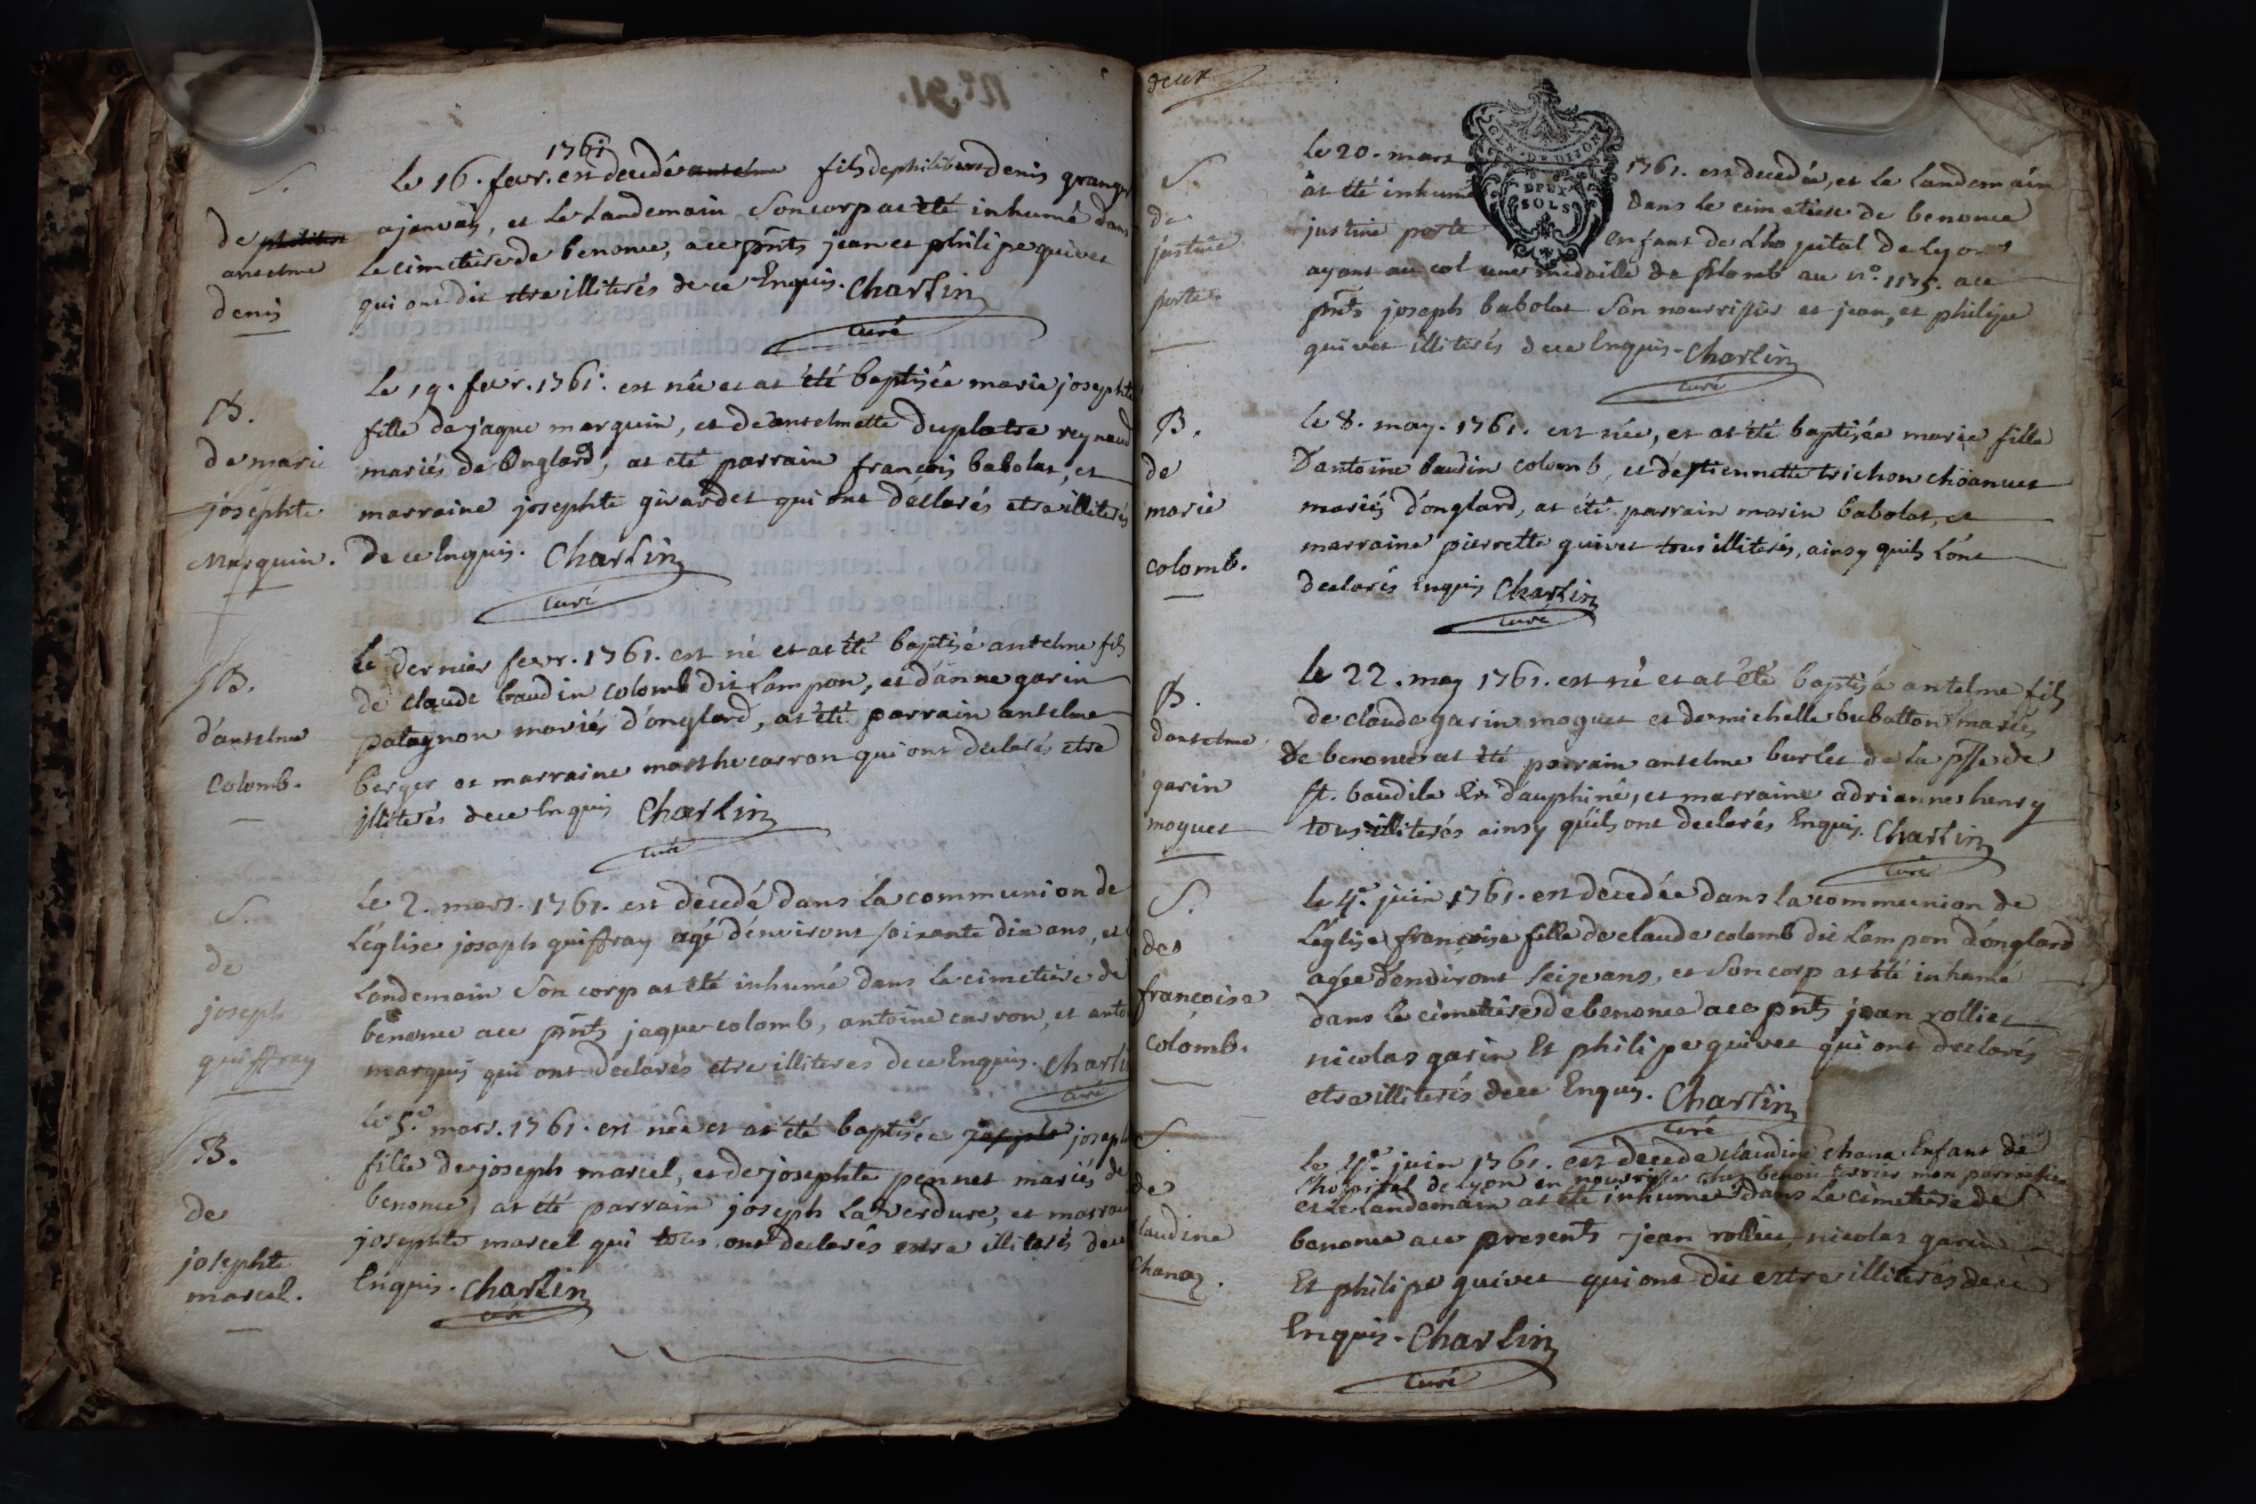 S.
de philibert
antelme
denis
1761
Le 16. fevr. est decedé antelme fils de philibert denis granger
a janvais, et le landemain son corp at été inhumé dans
le cimetiere de benonce, acc pnts jean et philipe quivet
qui ont dit etre illiterés de ce Enquis. Charlin
curé
B.
de marie
josephte
Marquin.
Le 19. fevr. 1761. est née et at été baptisée marie josephte
fille de jaque marquin, et de antelmette duplatre reynaud
mariés de Onglard, at eté parrain françois babolat, et
marraine josephte girardet qui ont déclarés etre illiterés
de ce Enquis. Charlin
curé
B.
d'antelme
Colomb.
Le dernier fevr. 1761. est né et at été baptisé antelme fils
de claude baudin colomb dit Lampon, et d'anne garin
patagnon mariés d'onglard, at été parrain antelme
berger et marraine marthe carron qui ont declarés etre
illiterés de ce Enquis Charlin
curé
S.
de
joseph
quiffray
Le 2. mars. 1761. est décedé dans la communion de
L'église joseph quiffray agé d'environt soixante dix ans, et
Landemain son corp at été inhumé dans le cimetiere de
benonce acc pnts jaque colomb, antoine carron, et anto
marquis qui ont déclarés etre illiteres de ce Enquis. Charli
curé
B.
de
josephte
marcel.
Le 5e. mars. 1761. est née et at été baptisée josephte joseph
fille de joseph marcel, et de josephte pennet mariés de
benonce, at été parrain joseph La verdure, et marrai
josephte marcel qui tous ont declarés estre illiterés de ce
Enquis. Charlin
curé
deux
GEN. DE DIJON
DEUX
SOLS
S.
de
justine
porte.
Le 20. mars 1761. est decedée, et le landemain
at été inhumé dans le cimetiere de benonce
justine porte enfant de L'ho pital de Lyon
ayant au col une medaille de plomb au n°. 1175. acc
pnts joseph babolat son nourrissier et jean, et philipe
quivet illiterés de ce Enquis. Charlin
curé
B.
de
marie
colomb.
Le 8. may. 1761. est née, et at été baptisée marie fille
D'antoine baudin colomb, et d'estiennette trichon choanuet
mariés d'onglard, at été parrain marin babolat, et
marraine pierrette quivet tous illiterés, ainsy quils l'ont
declarés Enquis Charlin
curé
B.
d'antelme
garin
moquet
Le 22. may 1761. est né et at été baptisé antelme fils
de claude garin moquet et de michelle bubatton mariés
De benonce at été parrain antelme burlet de la psse de
st. baudile En dauphiné, et marraine adrianne henry
tous illiterés ainsy qu'ils ont declarés Enquis. Charlin
curé
S.
de
françoise
colomb.
Le 4e. juin 1761. est decedée dans la communion de
L'église françoise fille de claude colomb dit Lampon d'onglard
agée d'environt seize ans, et son corp at été inhumé
dans le cimetiere de benonce acc pnts jean rollier
nicolas garin Et philipe quivet qui ont declarés
etre illiterés de ce Enquis. Charlin
curé
S.
de
claudine
Chanaz.
juin 1761. est decede claudine chana Enfant de
L'hopital de Lyon en nourrisse chez benoit mon parroissien
et le landemain at été inhume dans le cimetiere de
benonce acc presents jean rollier, nicolas garin
Et philipe quivet qui ont dit estre illiterés de ce
Enquis. Charlin
curé